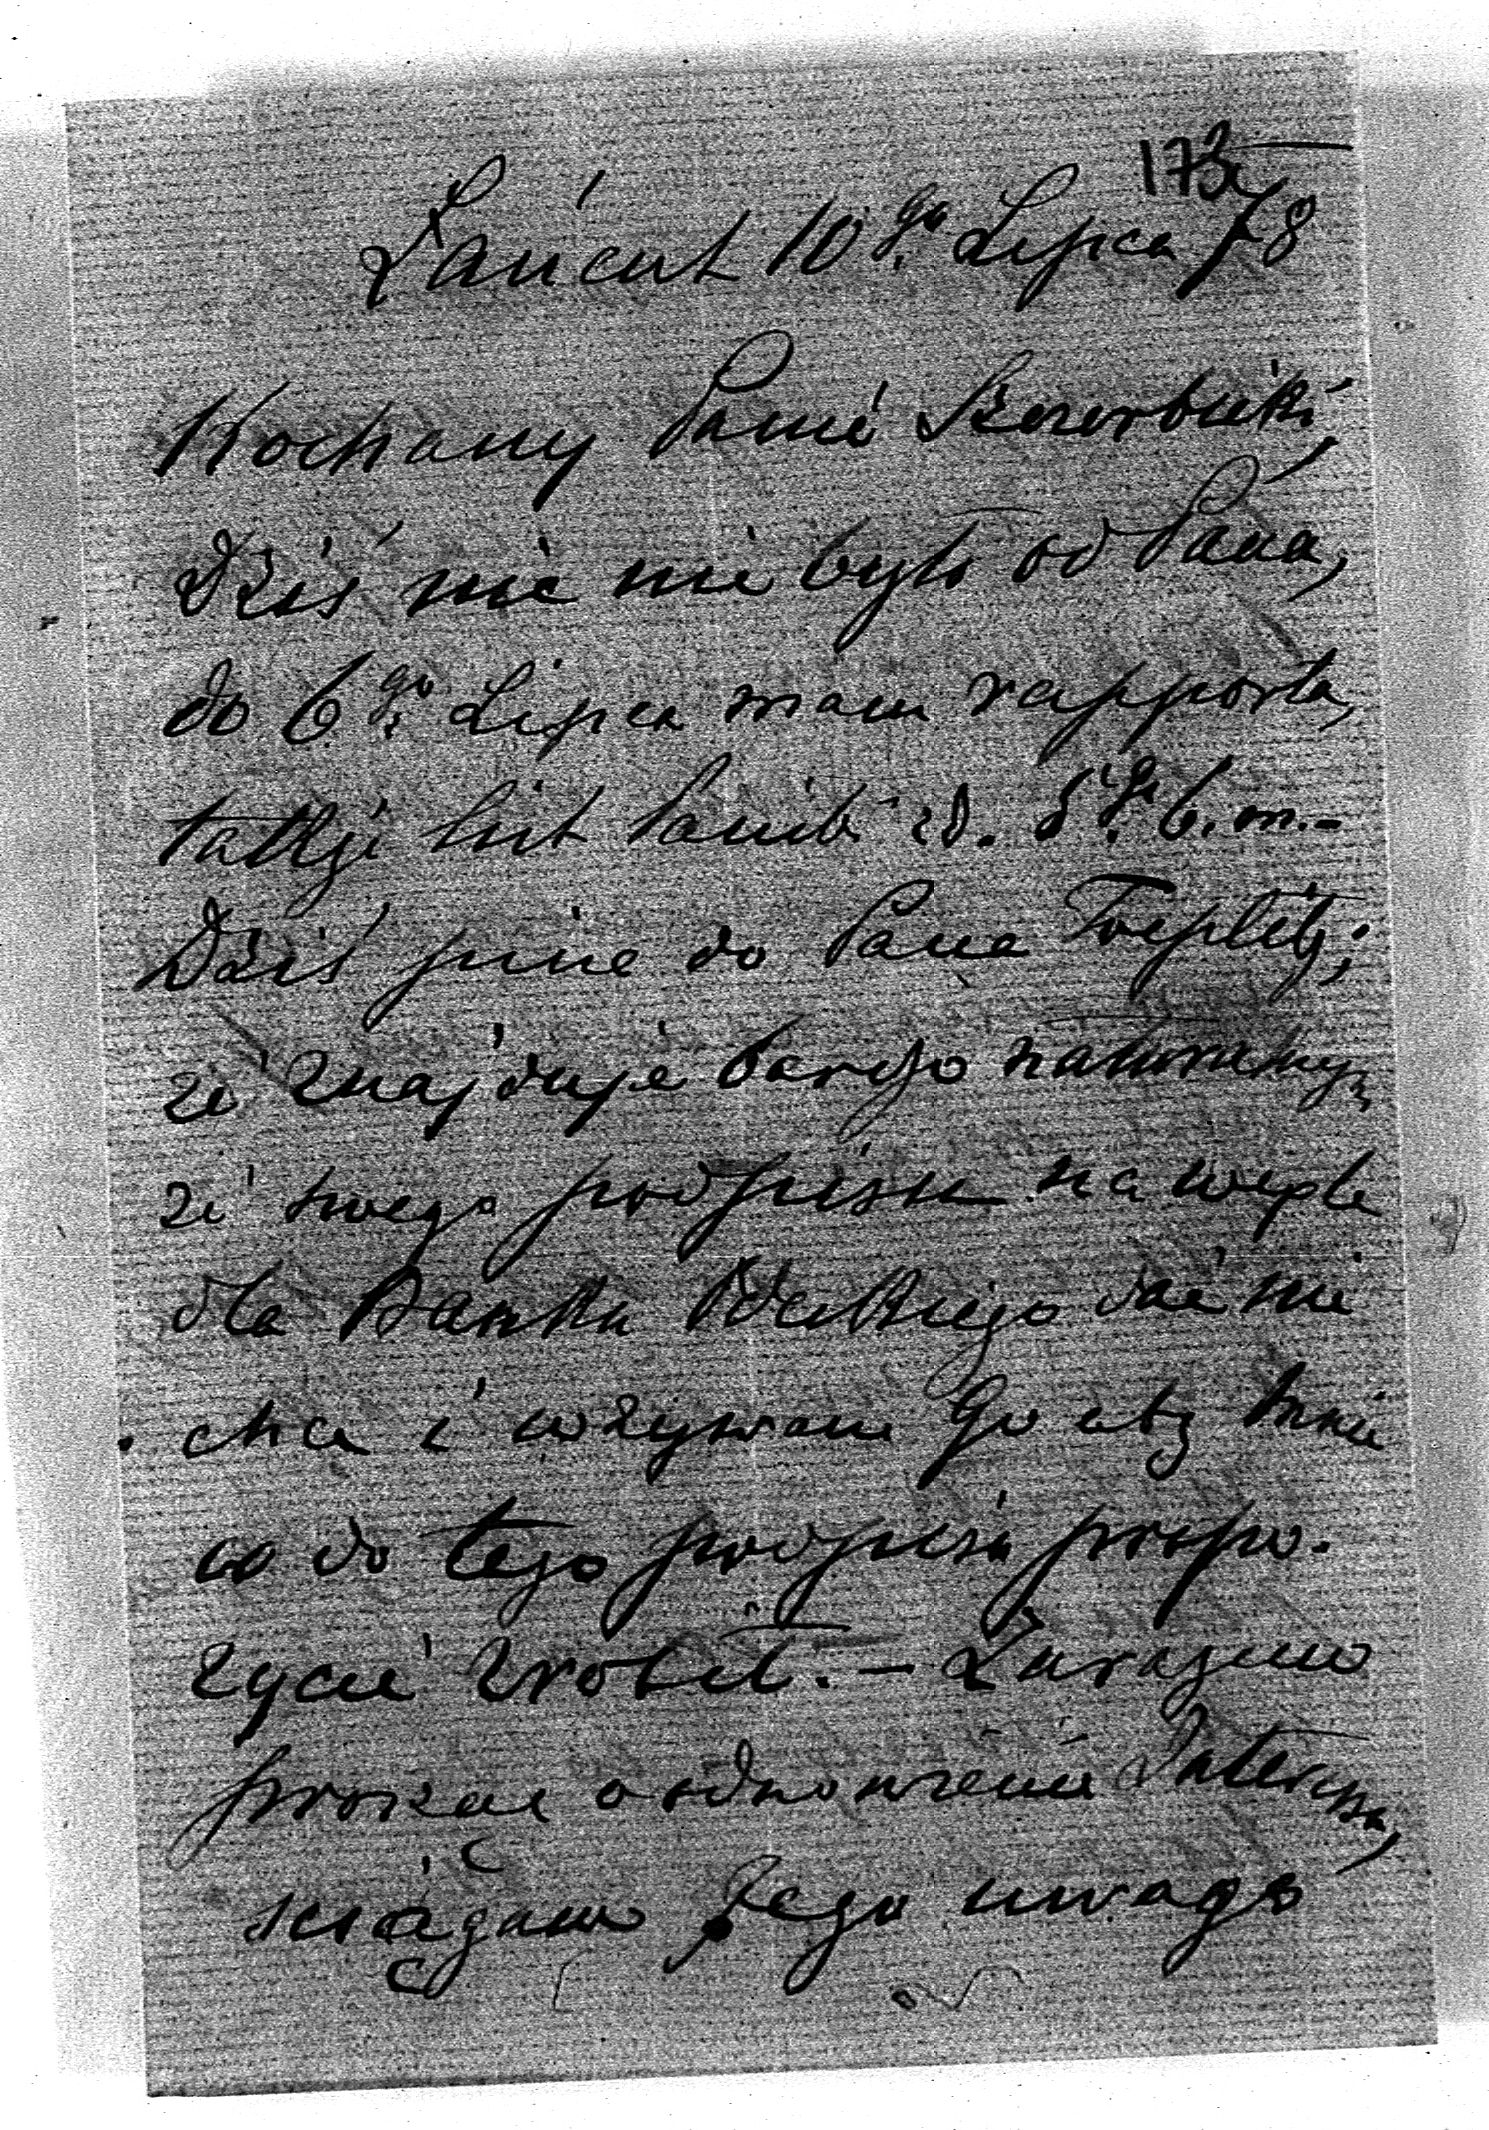 173
Łańcut 10go Lipca 78
Kochany Panie Szczerbicki,
Dziś nic nie było od Pana,
do 6go Lipca mam rapporta,
także list Pański z d. 5go b.m.-
Dziś pisze do Pana Toeplitz;
że znajduje bardzo naturalny,
że swego podpisu na wexle
dla Banku Polskiego dać nie
chce i wzywam Go aby mnie
co do tego podpisu propo-
zycie zrobił. – Zarazem
prosząc o odnowienie Interessu,
ściągam Jego uwagę